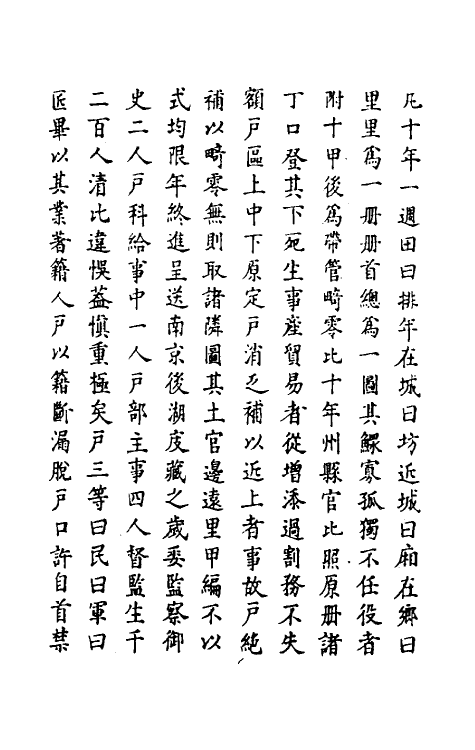 凡十年一週田曰排年在城曰坊近城曰廂在鄉曰
里里爲一册册首總爲一圖其鰥寡孤獨不任役者
附十甲後爲帶管畸零比十年州縣官比照原册諸
丁口登其下死生事產貿易者從增添過割務不失
額戶區上中下原定戶消乏補以近上者事故戶絶
補以畸零無則取諸隣圖其土官邊遠里甲編不以
式均限年終進呈送南京後湖庋藏之歲委監察御
史二人戶科給事中一人戶部主事四人督監生千
二百人清比違悞葢愼重極矣戶三等曰民曰軍曰
匠畢以其業著籍人戶以籍斷漏脫戶口許自首禁